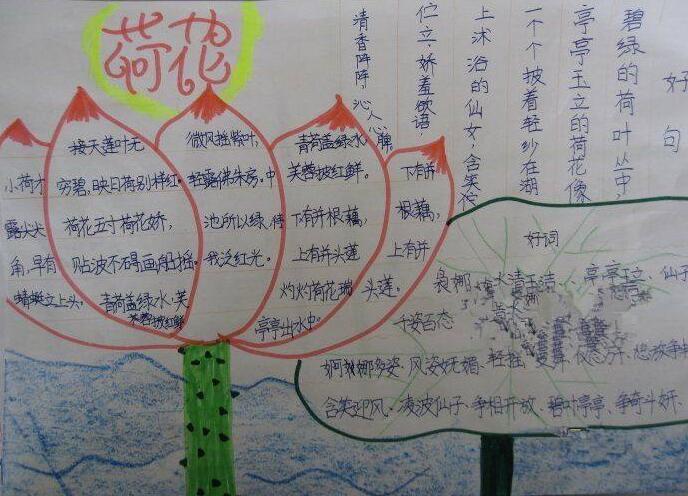 荷花
小荷才
露尖尖
角，早有
蜻蜓立上头。
接天莲叶无
穷碧，映日荷别样红。
荷花五寸荷花娇，
贴波不碍画船摇。
青荷盖绿水，芙
芙蓉披红鲜
微风摇紫叶，
轻露拂朱房。中
池所以绿，待
我泛红光。
青荷盖绿水，
芙蓉披红鲜。
下有并根藕，
上有并头莲
灼灼荷花瑞，
亭亭出水中。
下有并
根藕，
上有并
头莲。
好句
碧绿的荷叶丛中，
亭亭玉立的荷花像
一个个披着轻纱在湖
上沐浴的仙女，含笑伫
伫立、娇羞欲语，
清香阵阵，沁人心脾
好词
袅娜、水清玉洁、亭亭玉立、仙子
千姿百态
婀娜多姿、风姿妩媚、轻摇
含笑迎风、凌波仙子、争相开放、碧叶亭亭、争奇斗妍、